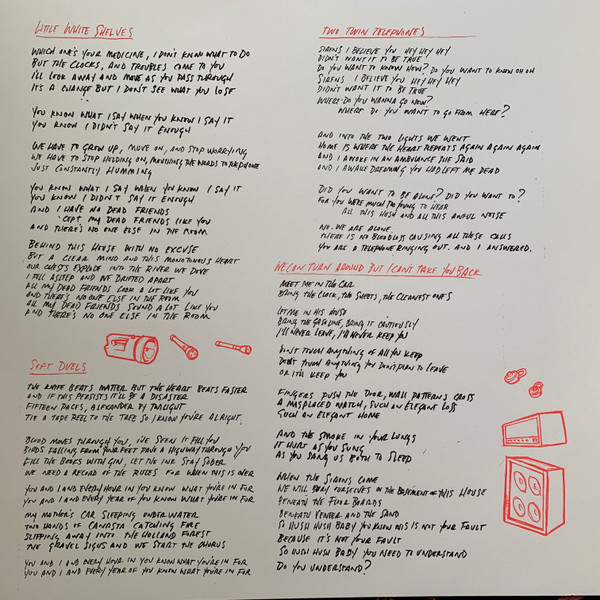 LITTLE WHITE SHELVES
WHICH ONE'S YOUR MEDICINE, I DON'T KNOW WHAT TO DO
BUT THE CLOCKS, AND TROUBLES COME TO YOU
I'LL LOOK AWAY AND MOVE AS YOU PASS THROUGH
IT'S A CHANGE BUT I DON'T SEE WHAT YOU LOSE
YOU KNOW WHAT I SAY WHEN YOU KNOW I SAY IT
YOU KNOW I DIDN'T SAY IT ENOUGH
WE HAVE TO GROW UP, MOVE ON, AND STOP WORRYING
WE HAVE TO STOP HOLDING ON, MOUTHING THE WORDS TO THE PHONE
JUST CONSTANTLY HUMMING
YOU KNOW WHAT I SAY WHEN YOU KNOW I SAY IT
YOU KNOW I DIDN'T SAY IT ENOUGH
AND I HAVE NO DEAD FRIENDS
'CEPT MY DEAD FRIENDS LIKE YOU
AND THERE'S NO ONE ELSE IN THE ROOM
BEHIND THIS HOUSE WITH NO EXCUSE
BUT A CLEAR MIND AND THIS MONOTONOUS HEART
OUR CHESTS EXPLODE INTO THE RIVER WE DOVE
I FELL ASLEEP AND WE DRIFTED APART
ALL MY DEAD FRIENDS LOOK A LOT LIKE YOU
AND THERE'S NO ONE ELSE IN THE ROOM
ALL MY DEAD FRIENDS SOUND A LOT LIKE YOU
AND THERE'S NO ONE ELSE IN THE ROOM
SOFT DUELS
THE KNIFE BEATS MATTER BUT THE HEART BEATS FASTER
AND IF THIS PERSISTS IT'LL BE A DISASTER
FIFTEEN PACES, ALEXANDER BY TAILGUT
TIE A TAPE REEL TO THE TREE SO I KNOW YOU'RE ALRIGHT
BLOOD MOVES THROUGH YOU, I'VE SEEN IT FILL YOU
BIRDS FALLING FROM YOUR FEET PAVE A HIGHWAY THROUGH YOU
FILL THE BOXES WITH GIN, LET THE INK STAY SOBER
WE NEED A RECORD OF THE RULES FOR WHEN THIS IS OVER
YOU AND I AND EVERY HOUR IN YOU KNOW WHAT YOU'RE IN FOR
YOU AND I AND EVERY YEAR OF YOU KNOW WHAT YOU'RE IN FOR
MY MOTHER'S CAR SLEEPING UNDERWATER
TWO HANDS OF CANASTA CATCHING FIRE
SLIPPING AWAY INTO THE HOLLAND FOREST
THE GRAVEL SIGHS AND WE START THE CHORUS
YOU AND I AND EVERY HOUR IN YOU KNOW WHAT YOU'RE IN FOR
YOU AND I AND EVERY YEAR OF YOU KNOW WHAT YOU'RE IN FOR
TWO TWIN TELEPHONES
SIRENS I BELIEVE YOU HEY HEY HEY
DIDN'T WANT IT TO BE TRUE
DO YOU WANT TO KNOW HOW? DO YOU WANT TO KNOW OH OH
SIRENS I BELIEVE YOU HEY HEY HEY
DIDN'T WANT IT TO BE TRUE
WHERE DO YOU WANNA GO NOW?
WHERE DO YOU WANT TO GO FROM HERE?
AND INTO THE TWO LIGHTS WE WENT
HOME IS WHERE THE HEART REPEATS AGAIN AGAIN AGAIN
AND I AWOKE IN AN AMBULANCE SHE SAID
AND I AWAKE DREAMING YOU HAD LEFT ME DEAD
DID YOU WANT TO BE ALONE? DID YOU WANT TO?
FOR YOU WERE MUCH TOO YOUNG TO HEAR
ALL THIS HUSH AND ALL THIS AWFUL NOISE
NO. WE ARE ALONE.
THERE IS NO BLOODLOSS CAUSING ALL THESE CALLS
YOU ARE A TELEPHONE RINGING OUT. AND I ANSWERED.
WE CAN TURN AROUND BUT I CAN'T TAKE YOU BACK
MEET ME IN THE CAR
BRING THE CLOCK, THE SHEETS, THE CLEANEST ONES
LET ME IN HIS HOUSE
BRING THE GASOLINE, BRING IT CAUTIOUSLY
I'LL NEVER LEAVE, I'LL NEVER KEEP YOU
DON'T TOUCH ANYTHING OF ALL YOU KEEP
DON'T TOUCH ANYTHING YOU DON'T PLAN TO LEAVE
OR IT'LL KEEP YOU
FINGERS PUSH THE DOOR, WALL PATTERNS CROSS
A MISPLACED MATCH, SUCH AN ELEGANT LOSS
SUCH AN ELEGANT HOME
AND THE SMOKE IN YOUR LUNGS
IT HURT AS YOU SUNG
AS YOU SANG US BOTH TO SLEEP
WHEN THE SIRENS COME
WE WILL BURY OURSELVES IN THE BASEMENT OF THIS HOUSE
BENEATH THE FLOOR BOARDS
BENEATH VENEER AND THE SAND
SO HUSH HUSH BABY YOU KNOW THIS IS NOT YOUR FAULT
BECAUSE IT'S NOT YOUR FAULT
SO HUSH HUSH BABY YOU NEED TO UNDERSTAND
DO YOU UNDERSTAND?